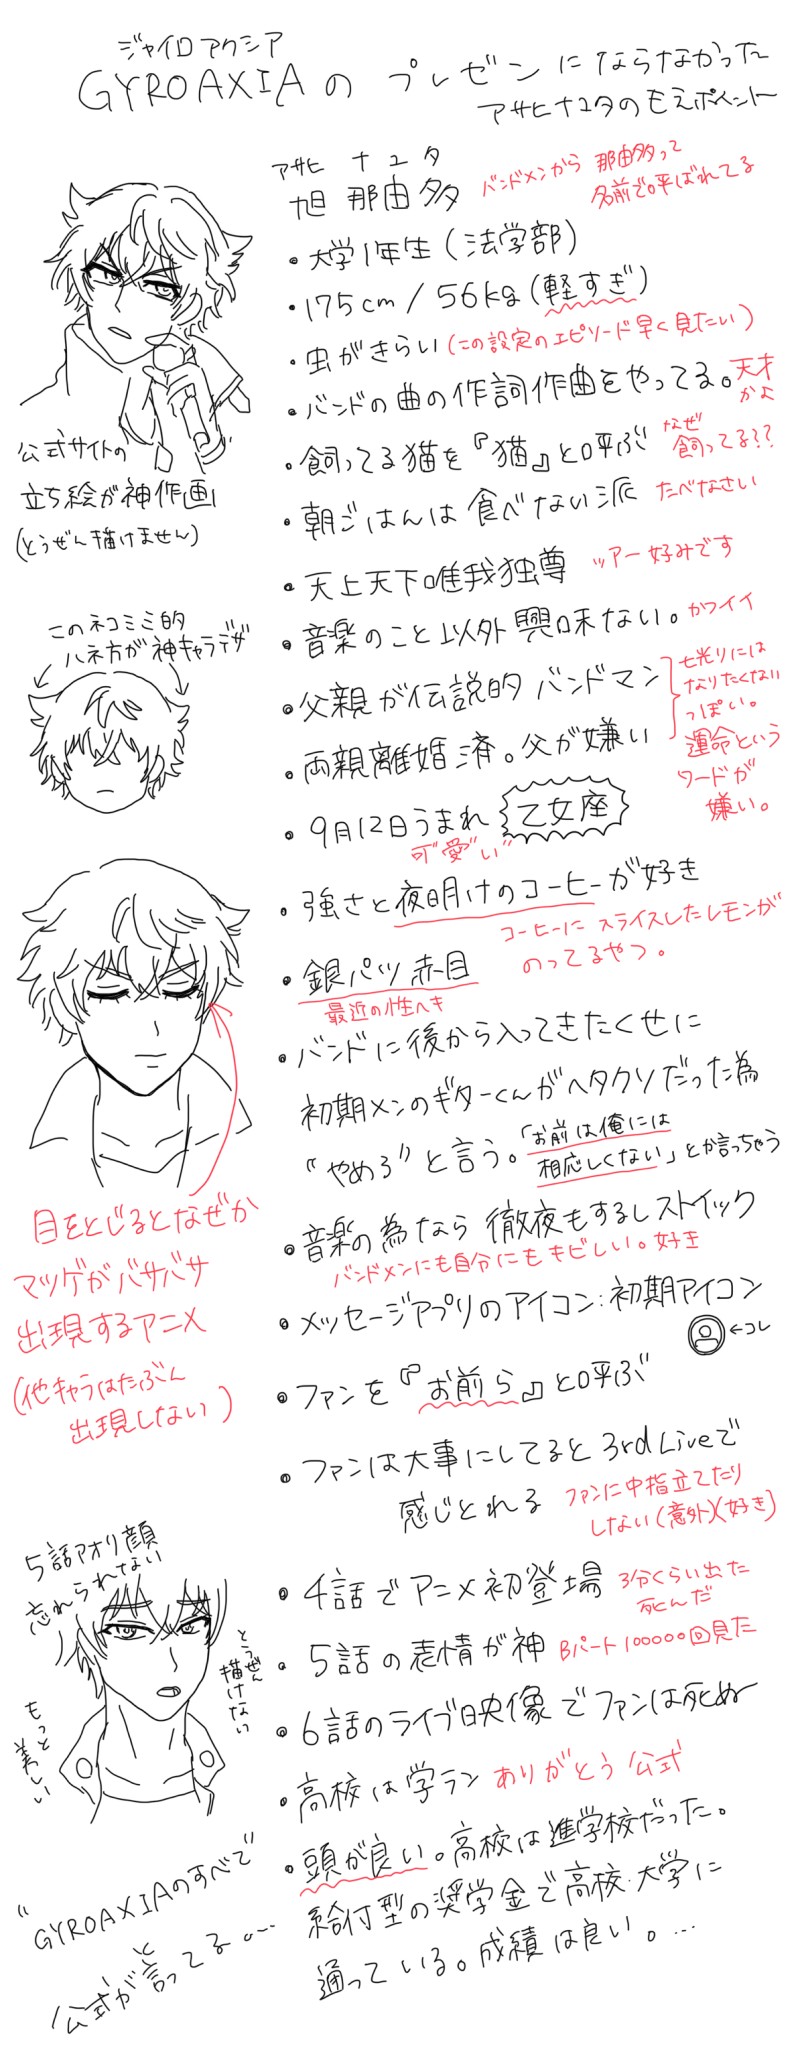 ジャイロアクシア
GYROAXIAの プレゼンにならなかった
アサヒナユタのもえポイント
アサヒ ナユタ
旭 那由多
バンドメンから 那由多って
名前で呼ばれてる
・大学1年生(法学部)
・175cm/56kg(軽すぎ)
・虫がきらい(この設定のエピソード早く見たい)
・バンドの曲の作詞作曲をやってる。天才
かよ
公式サイトの
立ち絵が神作画
(とうぜん描けません)
・飼ってる猫を『猫』と呼ぶ
なぜ
飼ってる??
・朝ごはんは食べない派 たべなさい
・天上天下唯我独尊 ツアー好みです
・音楽のこと以外興味ない。カワイイ
このネコミミ的
ハネ方が神キャラデザ
・父親が伝説的バンドマン
・両親離婚済。父が嫌い
七光りには
なりたくない
っぽい。
運命という
ワードが
嫌い。
・9月12日うまれ 乙女座
可"愛"い"
・強さと夜明けのコーヒーが好き
コーヒーに スライスしたレモンが
のってるやつ。
・銀パツ赤目
最近の性へき
・バンドに後から入ってきたくせに
初期メンのギターくんがヘタクソだった為
"やめろ"と言う。「お前は俺には
相応しくない」とか言っちゃう
目をとじるとなぜか
マツゲがバサバサ
出現するアニメ
(他キャラはたぶん
出現しない)
・音楽の為なら 徹夜もするしストイック
バンドメンにも自分にもキビしい。好き
・メッセージアプリのアイコン:初期アイコン
←コレ
・ファンを『お前ら』と呼ぶ
・ファンは大事にしてると3rd Liveで
感じとれる
ファンに中指立てたり
しない(意外)(好き)
5話アオリ顔
忘れられない
とうぜん
描けない
もっと
美しい
・4話でアニメ初登場 3分くらい出た
死んだ
・5話の表情が神 Bパート100000回見た
・6話のライブ映像でファンは死ぬ
・高校は学ラン ありがとう 公式
・頭が良い。高校は進学校だった。
給付型の奨学金で高校・大学に
通っている。成績は良い。…
"GYROAXIAのすべて"
と
公式が言ってる…